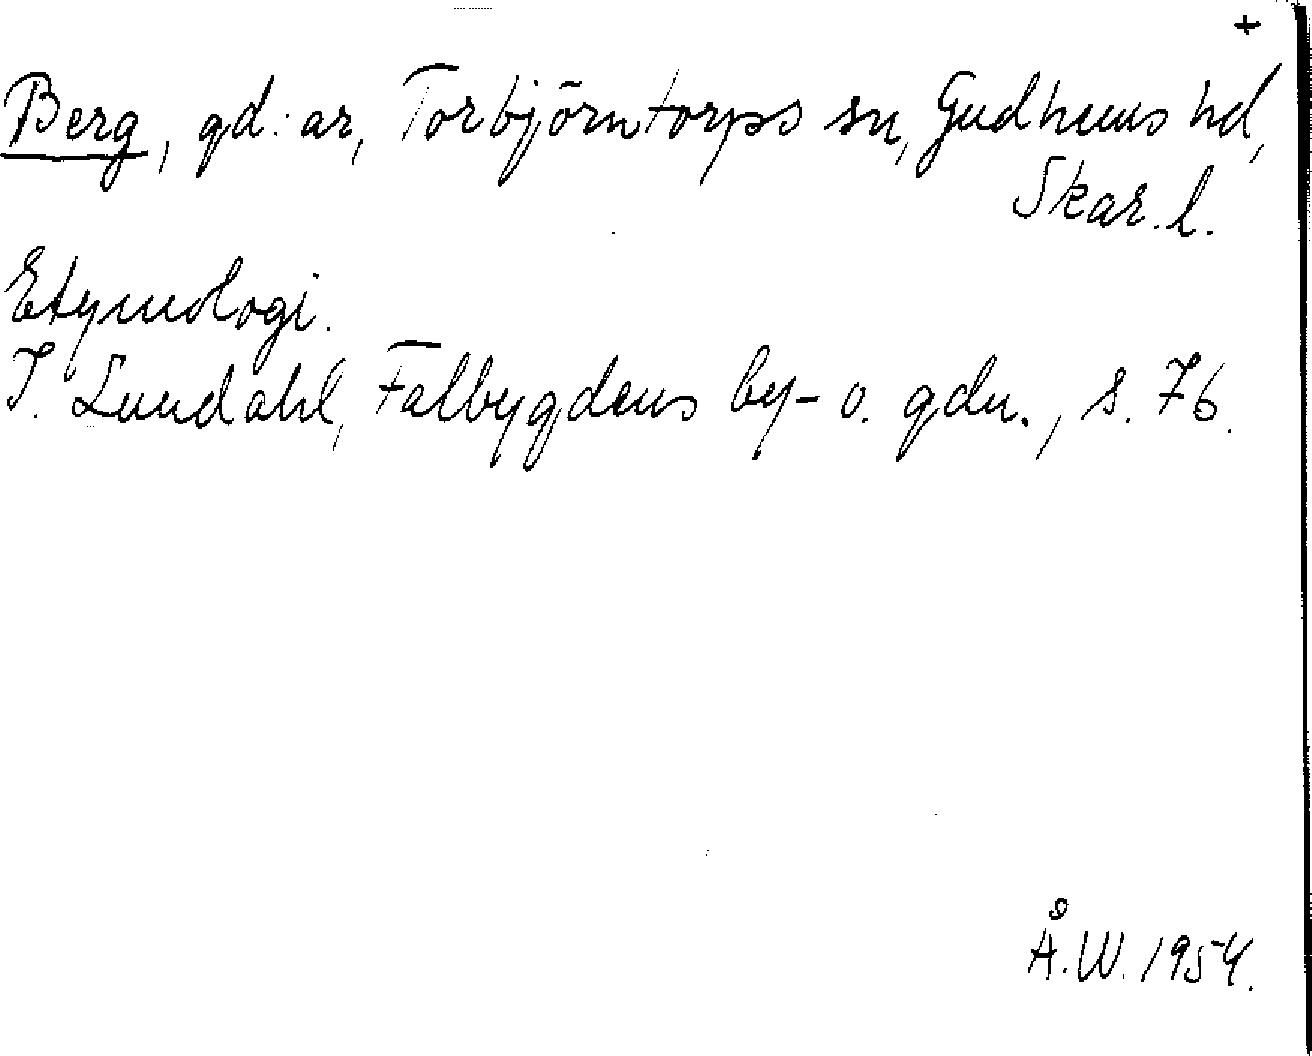 +
Berg, gd:ar, Torbjörntorps sn, Gudhems hd,
Skar. l.
Etymologi.
I. Lundahl, Falbygdens by- o. gdn., s. 76.
Å.W. 1954.